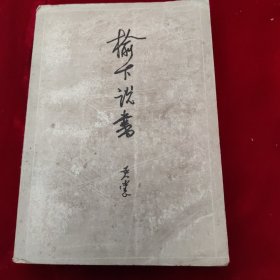 榆下说书
黄裳